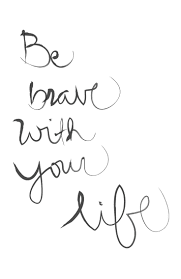 Be
brave
with
your
life